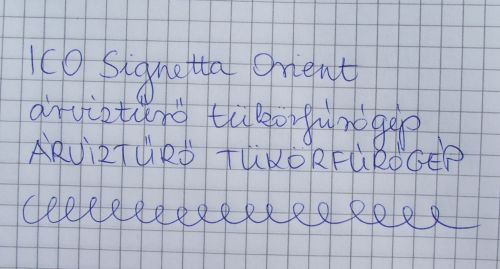 ICO Signetta Orient
árvíztűrő tükörfúrógép
ÁRVÍZTŰRŐ TÜKÖRFÚRÓGÉP